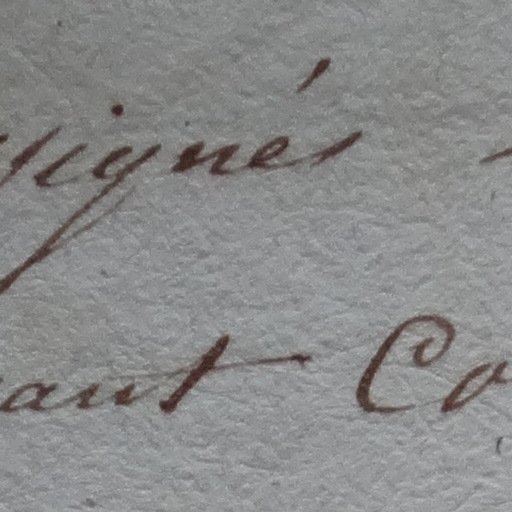 signés
ant Co